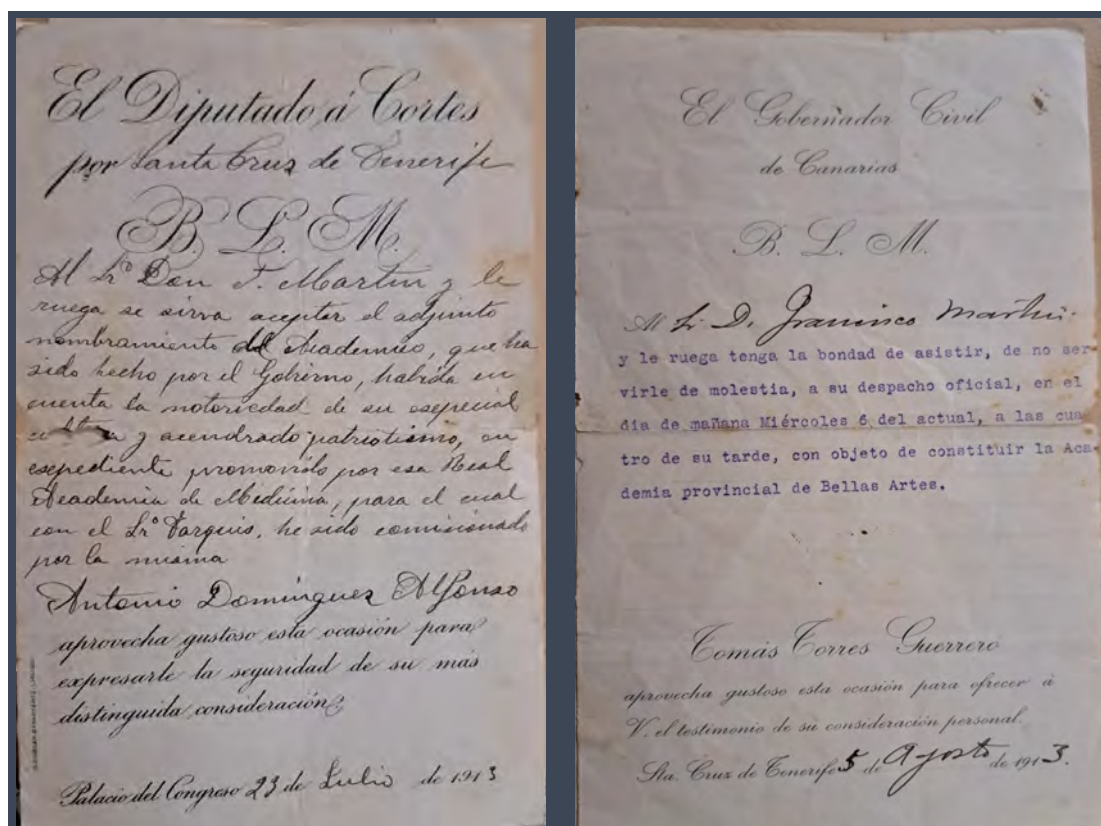 El Diputado á Cortes
por Santa Cruz de Tenerife
B. L. M.
Al Sr Don F. Martin y le
ruega se sirva aceptar el adjunto
nombramiento de Academico, que ha
sido hecho por el Gobierno, habida en
cuenta la notoriedad de su esepecial
y acendrado patriotismo, en
esepediente promovido por esa Real
Academia de Medicina, para el cual
con el Sro Tarquis, he sido comisionado
por la misma
Antonio Dominguez Alfonso
aprovecha gustoso esta ocasión para
expresarle la seguridad de su más
distinguida consideración
Palacio del Congreso 23 de Julio de 1913
El Gobernador Civil
de Canarias
B. L. M.
Al Sr. D. Francisco Martin
y le ruega tenga la bondad de asistir, de no ser-
virle de molestia, a su despacho oficial, en el
dia de mañana Miércoles 6 del actual, a las cua-
tro de su tarde, con objeto de constituir la Aca-
demia provincial de Bellas Artes.
Tomás Torres Guerrero
aprovecha gustoso esta ocasión para ofrecer á
V. el testimonio de su consideración personal.
Sta. Cruz de Tenerife 5 de Agosto de 1913.